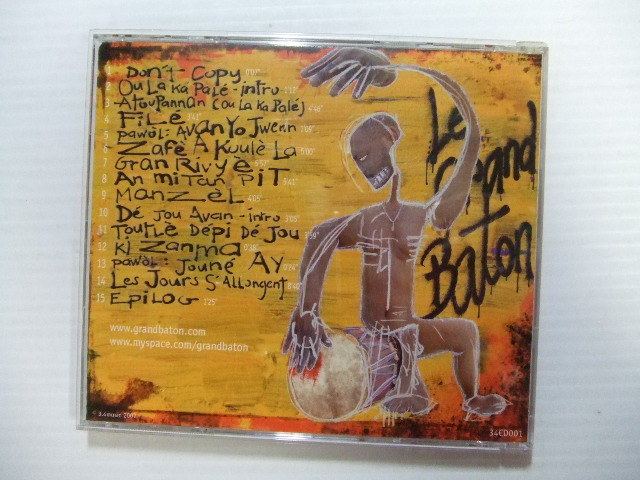 1 Don't - Copy 0'07"
2 Ou La Ka Palé - intro 1'17"
3 Atoupannan (ou la ka palé) 4'46"
4 Filé 3'41"
5 pawòl: Avan Yo Jwenn 1'09"
6 Zafè A Koulè La
7 Gran Rivyè 5'57"
8 An mitan PiT 5'41"
9 Manzèl
10 Dé Jou Avan - intro 3'05"
11 Toutlé Dépi Dé Jou 3'59"
12 Ki Zanma 0'38"
13 pawòl: Jouné Ay 0'24"
14 Les Jours S'Allongent 8'40"
15 Epilog 1'25"
Le
Grand
Baton
www.grandbaton.com
www.myspace.com/grandbaton
© 3.4music 2007
34CD001